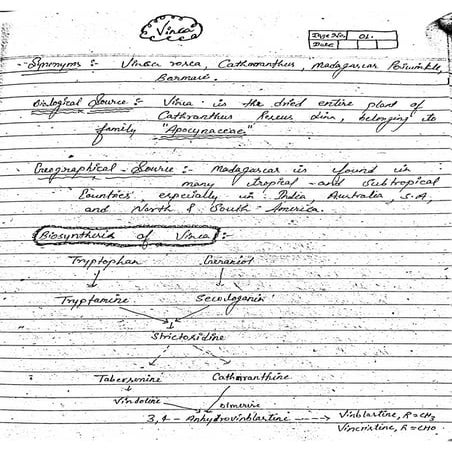 Vinca
Page No. 01.
Date
Synonyms :- Vinca rosea, Catharanthus, Madagascar Periwinkle,
Barmasi.
Biological Source :- Vinca is the dried entire plant of
Catharanthus Roseus linn, belonging to
family "Apocynaceae"
Geographical - Source :- Madagascar is found in
many tropical and subtropical
Countries especially in India, Australia, S.A,
and North & South America.
Biosynthesis of Vinca :-
Tryptophan Geraniol
Tryptamine Secologanin
Strictosidine
Tabersonine Catharanthine
Vindoline
3,4 - Anhydrovinblastine Vinblastine, R = CH3
Vincristine, R = CHO